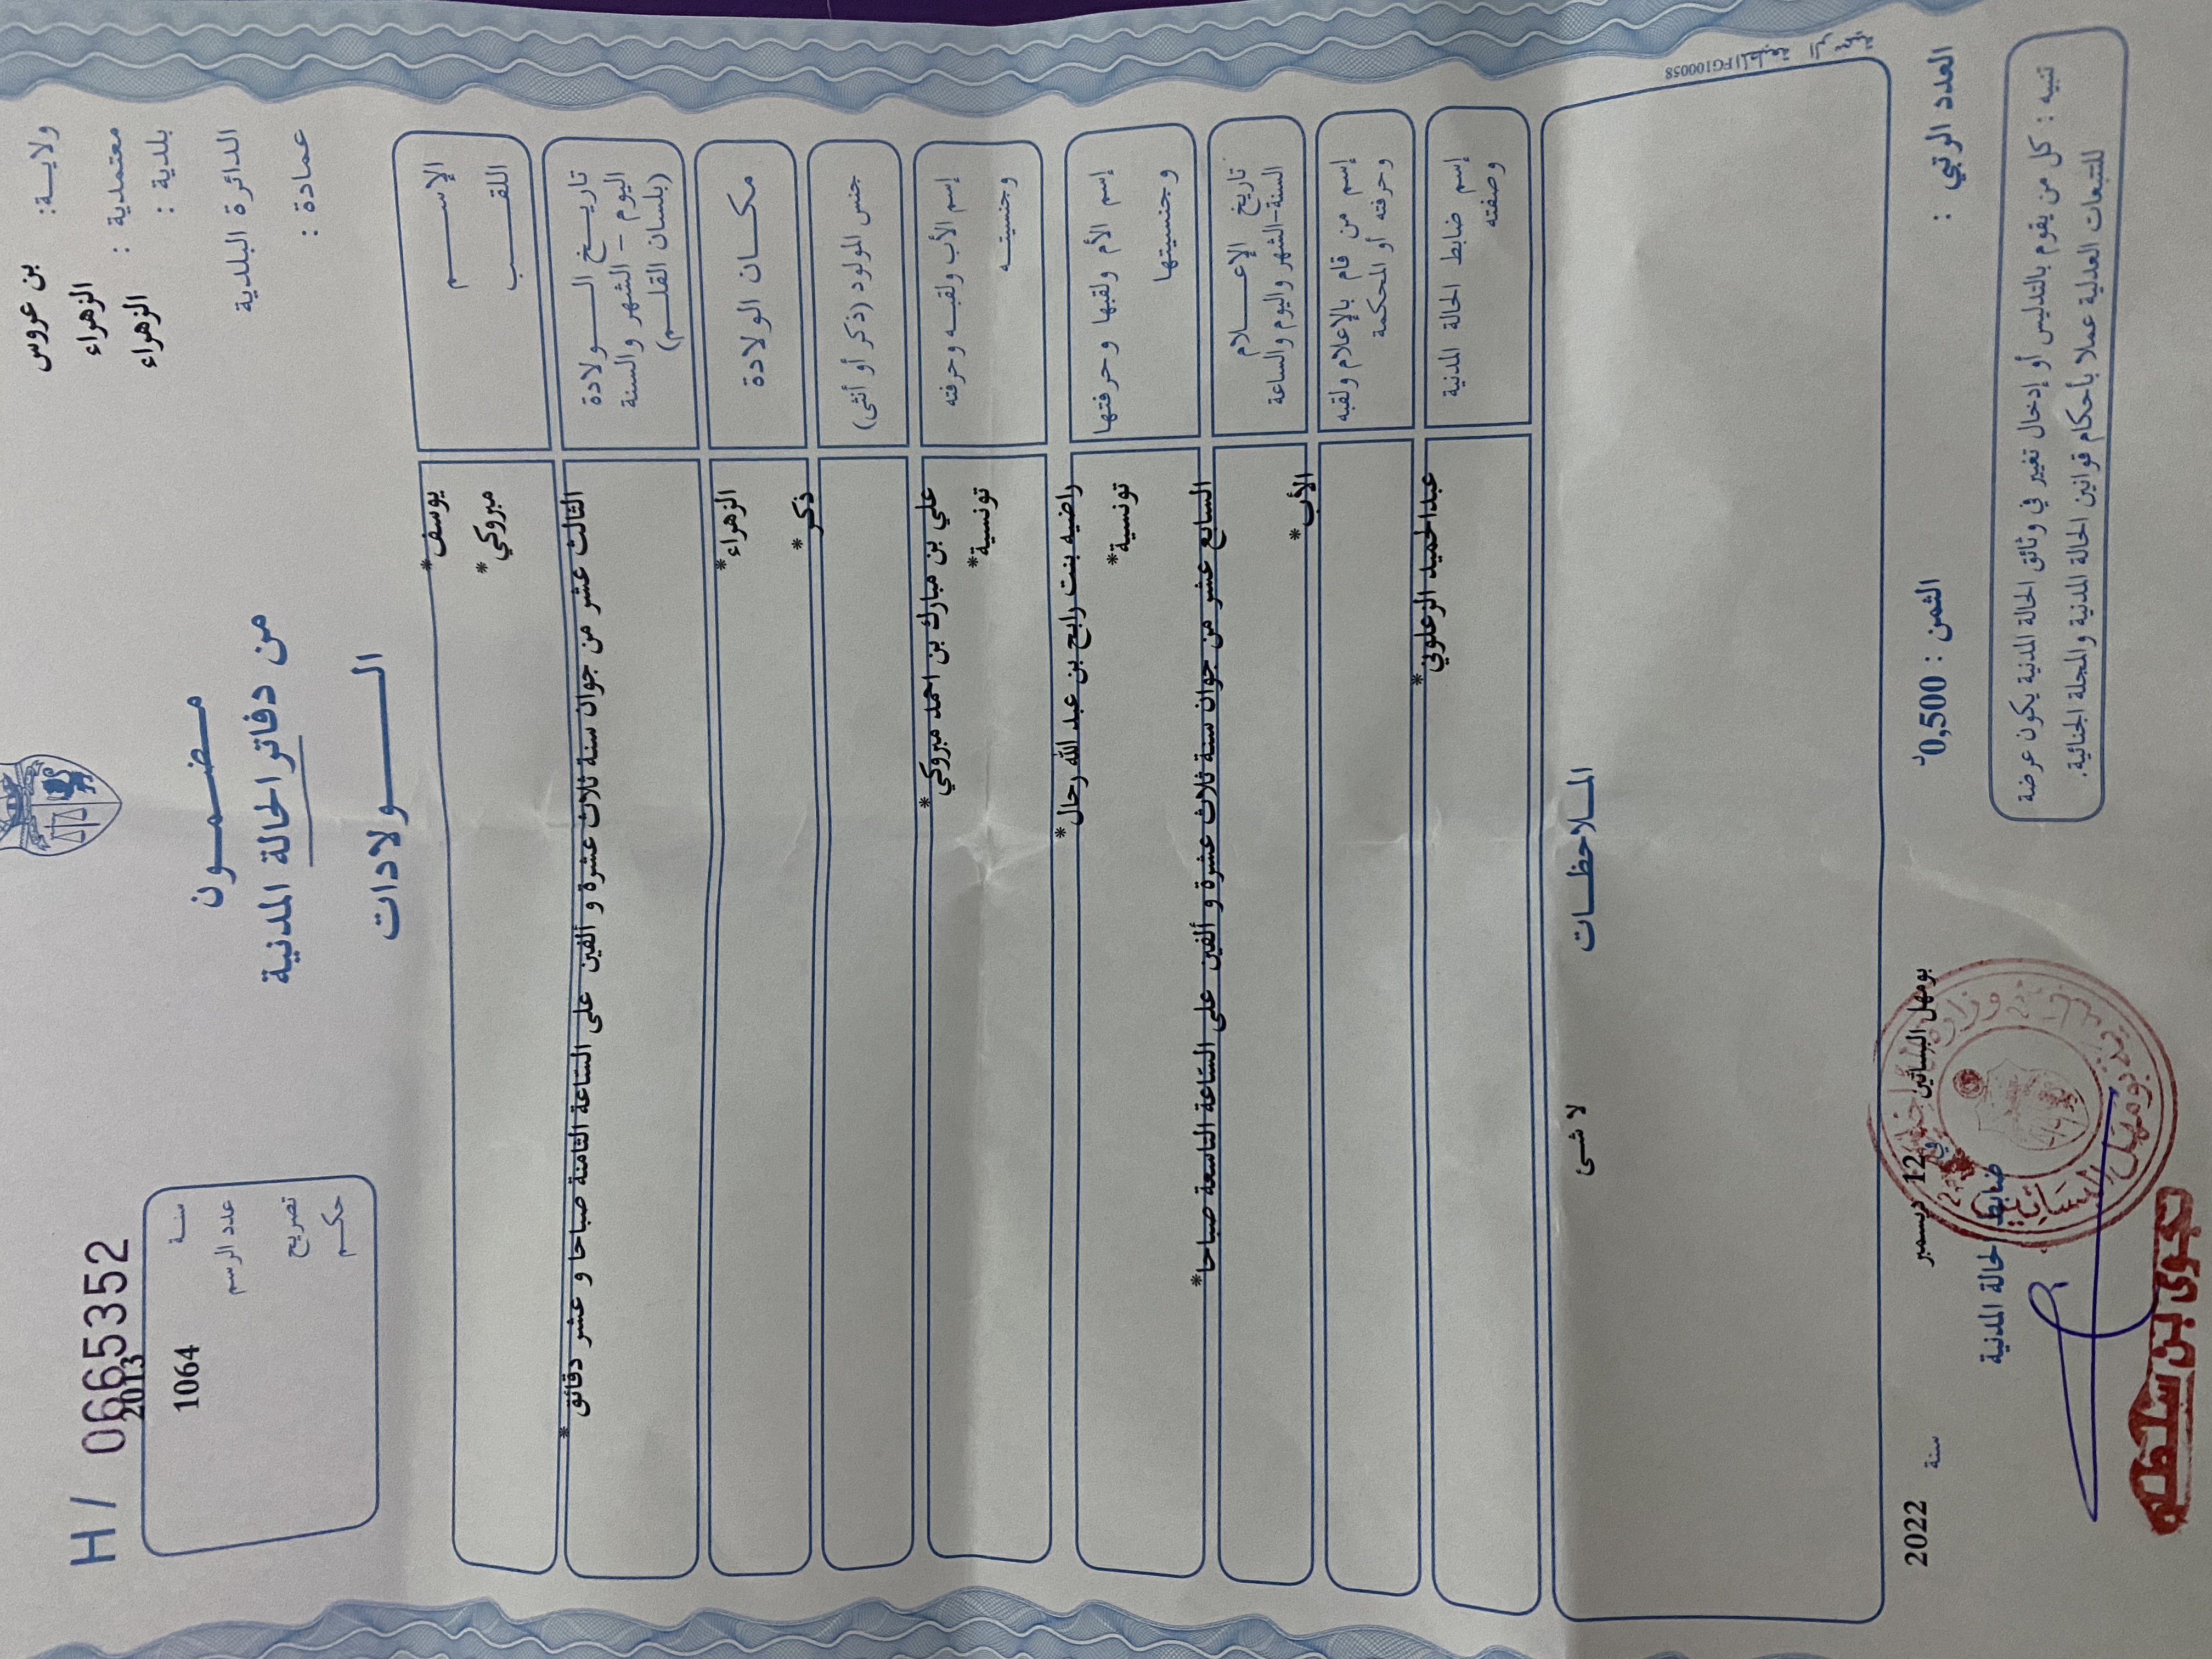 ولايـــة: بن عروس
معتمدية : الزهراء
بلدية : الزهراء
الدائرة البلدية
عمادة :
مـــضـــمـــون
من دفاتر الحالة المدنية
الـــــولادات
H / 0665352
سنــة 2013
عدد الرسم 1064
تصريح
حكــم
الإســـــم يوسف*
اللقـــــب مبروكي*
تاريـــخ الـــــولادة
اليوم - الشهر والسنة
(بلسان القلـــم)
الثالث عشر من جوان سنة ثلاث عشرة و ألفين على الساعة الثامنة صباحا و عشر دقائق*
مكـــان الولادة الزهراء*
جنس المولود (ذكر أو أنثى) ذكر*
إسم الأب ولقبــه وحرفته علي بن مبارك بن احمد مبروكي*
وجنسيتــه تونسية*
إسم الأم ولقبها وحرفتها راضيه بنت رابح بن عبد الله رحال*
وجنسيتها تونسية*
تاريخ الإعـــــلام
السنة-الشهر واليوم والساعة
السابع عشر من جوان سنة ثلاث عشرة و ألفين على الساعة التاسعة صباحا*
إسم من قام بالإعلام ولقبه
وحرفته أو المحكمة
الأب*
إسم ضابط الحالة المدنية
وصفته
عبدالحميد الزعلوني*
المـــلاحظـــات
لا شئ
المطبعة FG100058
العدد الرتبي :
الثمن : 0,500د
بومهل البساتين في 12 ديسمبر سنة 2022
ضابط الحالة المدنية
تنبيه : كل من يقوم بالتدليس أو إدخال تغيير في وثائق الحالة المدنية يكون عرضة
للتتبعات العدلية عملا بأحكام قوانين الحالة المدنية والمجلة الجنائية.